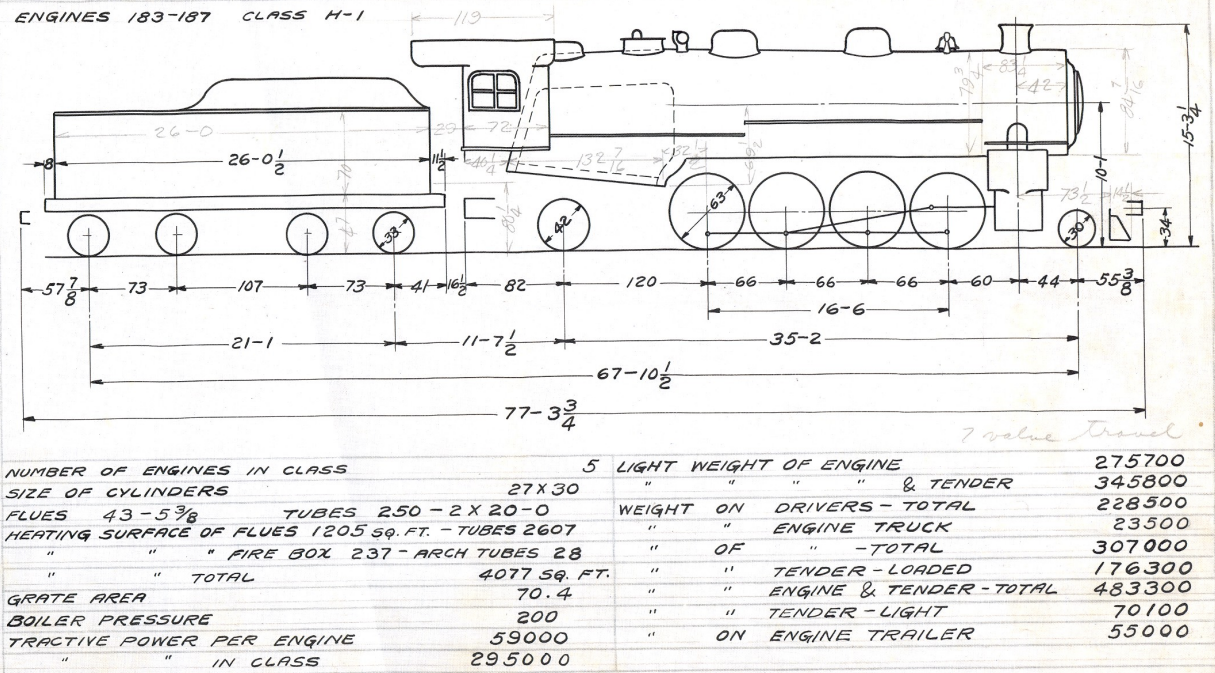 ENGINES 183-187 CLASS H-1
119
83 1/4
42
79 3/4
84 7/16
15-3 1/4
26-0
29
72
8
26-0 1/2
11 1/2
70
40 1/4
132 7/16
32 1/2
10-1
73 1/2
47
33
42
63
30
34
57 7/8
73
107
73
41
16 1/2
82
120
66
66
66
60
44
55 3/8
16-6
21-1
11-7 1/2
35-2
67-10 1/2
77-3 3/4
7 valve travel
NUMBER OF ENGINES IN CLASS 5
SIZE OF CYLINDERS 27X30
FLUES 43-5 3/8 TUBES 250-2X20-0
HEATING SURFACE OF FLUES 1205 SQ.FT.-TUBES 2607
" " " FIRE BOX 237-ARCH TUBES 28
" " TOTAL 4077 SQ. FT.
GRATE AREA 70.4
BOILER PRESSURE 200
TRACTIVE POWER PER ENGINE 59000
" " IN CLASS 295000
LIGHT WEIGHT OF ENGINE 275700
" " " " & TENDER 345800
WEIGHT ON DRIVERS-TOTAL 228500
" " ENGINE TRUCK 23500
" OF " -TOTAL 307000
" " TENDER-LOADED 176300
" " ENGINE & TENDER-TOTAL 483300
" " TENDER-LIGHT 70100
" ON ENGINE TRAILER 55000